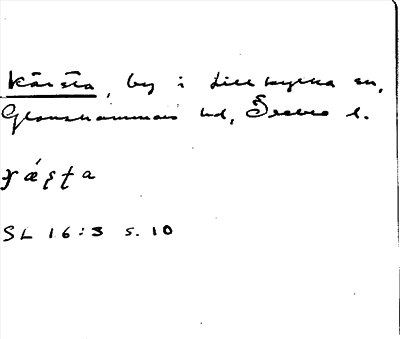 Kårsta, by i Lillkyrka sn,
Glanshammars hd, Örebro l.
SL 16:3 s. 10